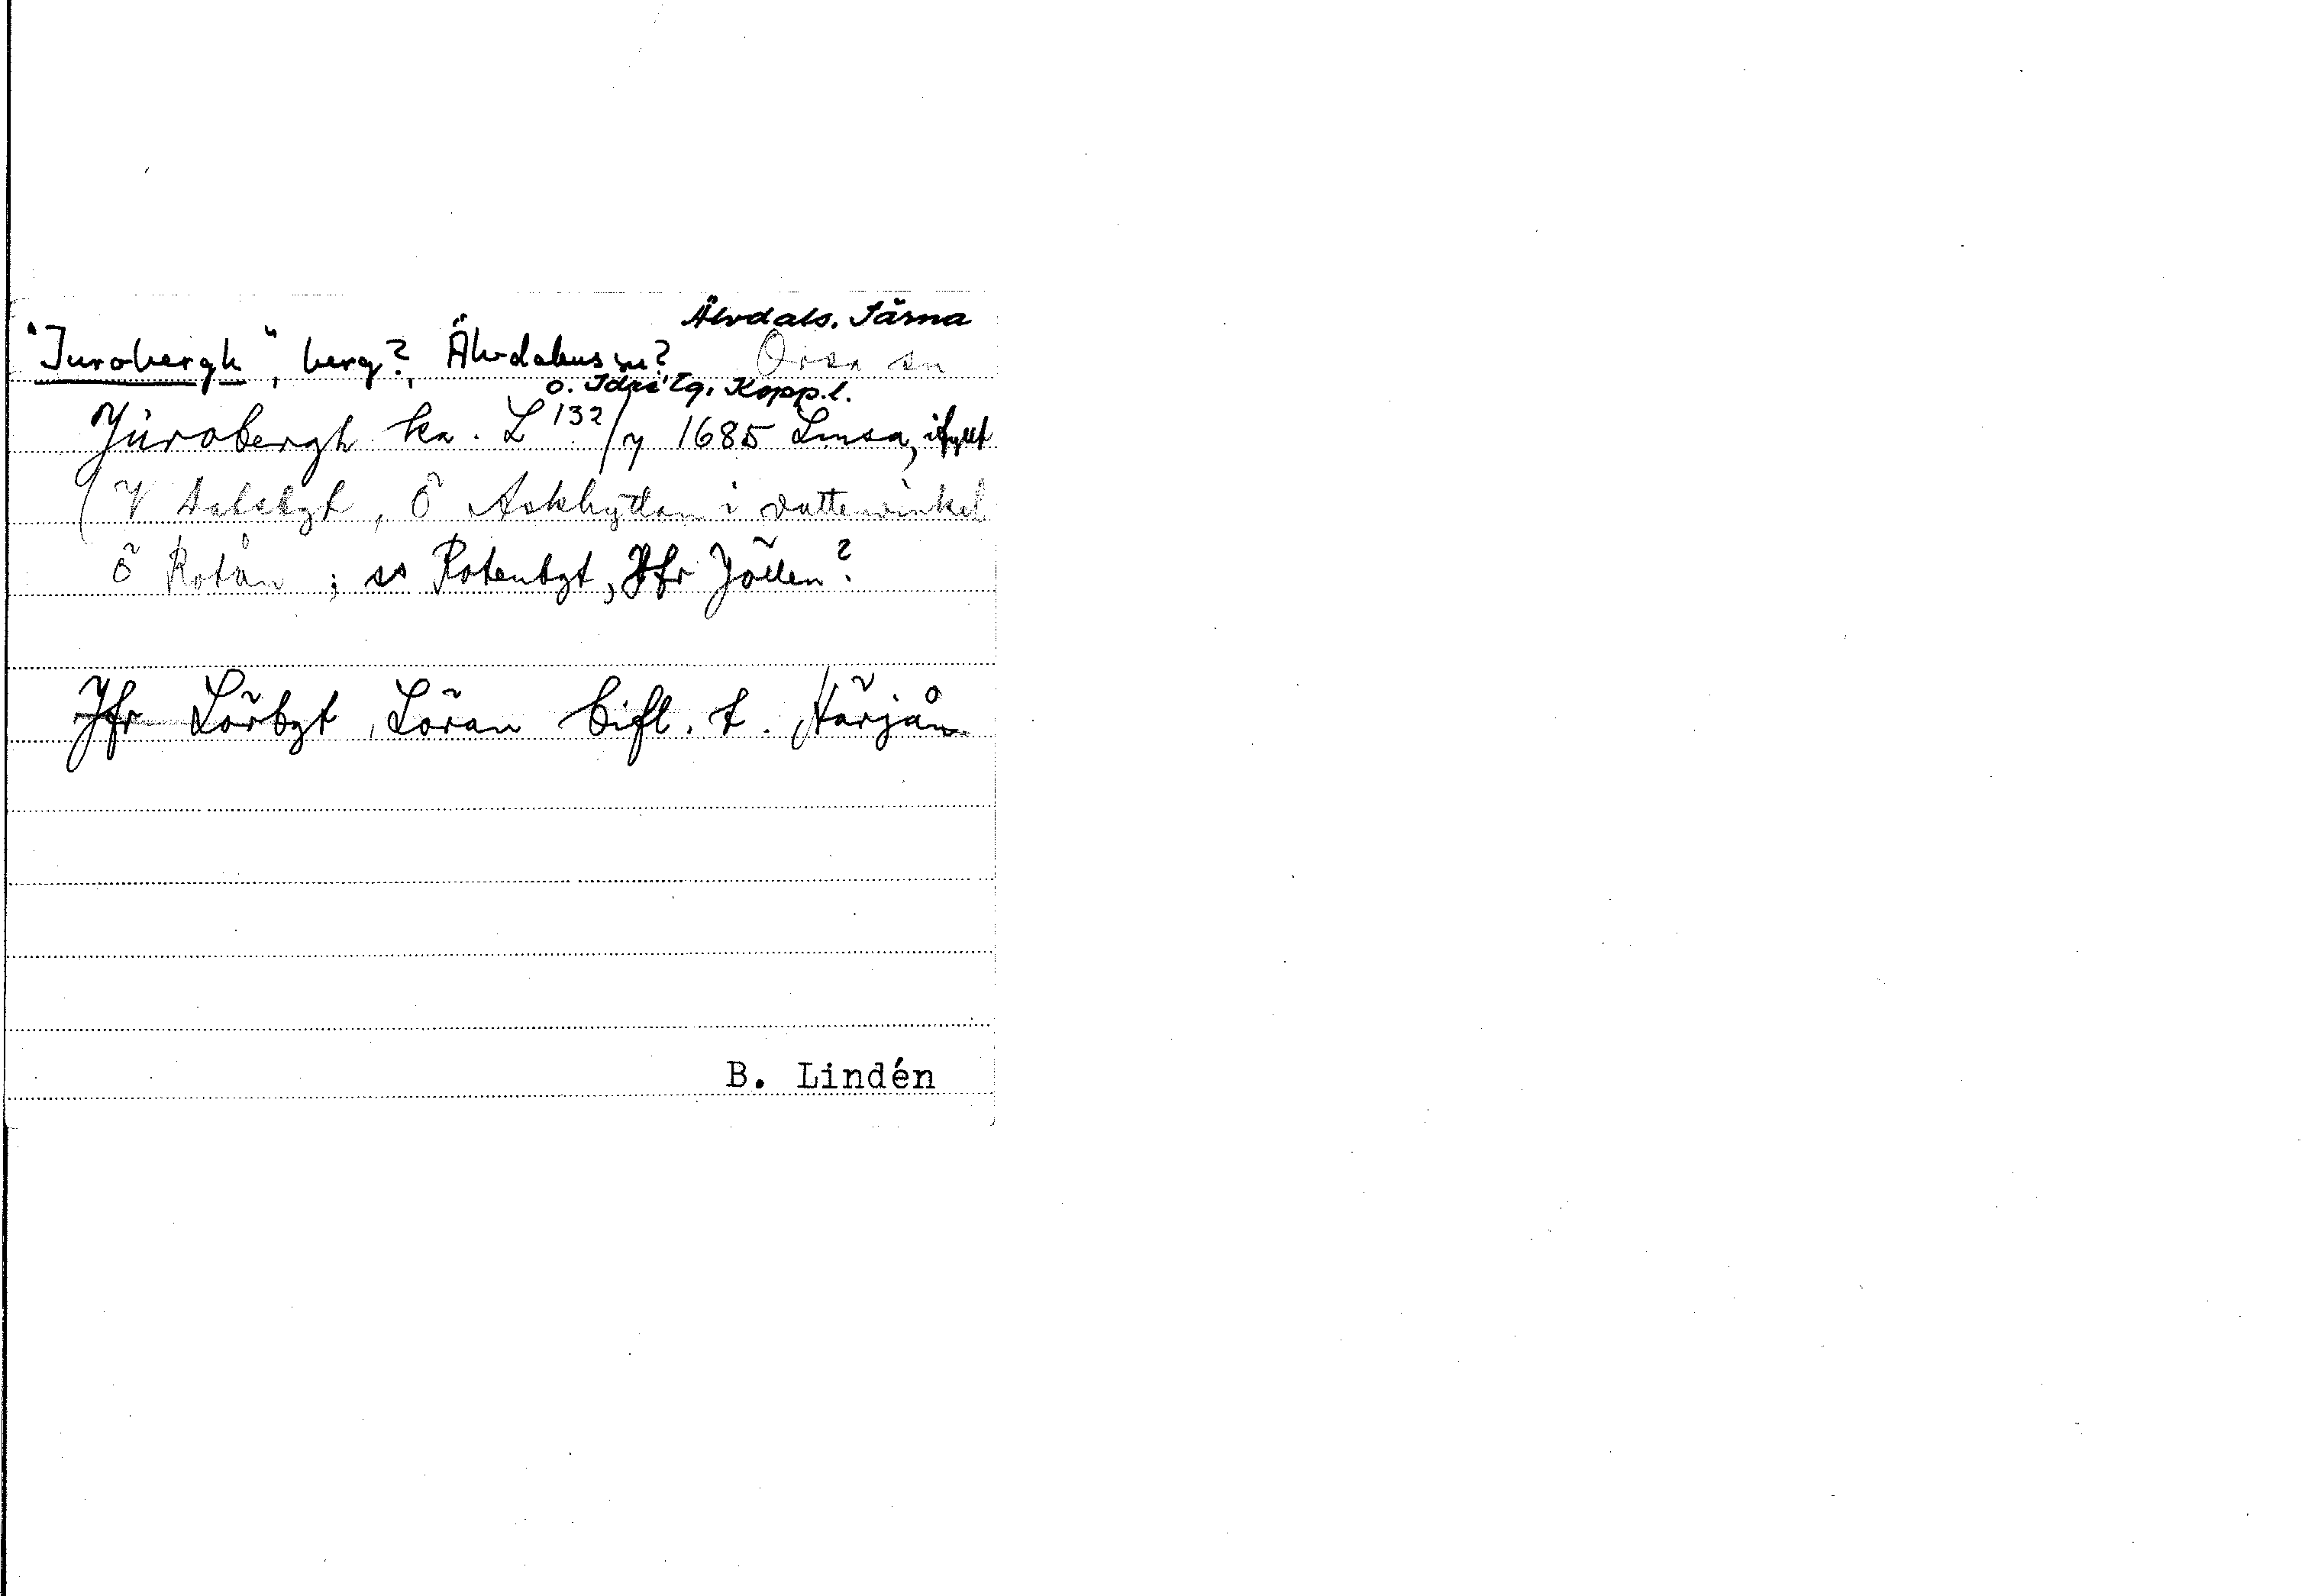 Älvdals. Särna
"Jurobergh", berg? Älvdalens sn? Orsa sn
o. Idre tg. Kopp.l.
Jürobergh ka. L 132/7 1685 Lmsa, ifyllt
(V bgt, Ö i vattenvinkel
Ö Rotån ; ss Rotenbgt, Jfr ?
Jfr Lörbgt, Löran bifl. t. Härjån
B. Lindén